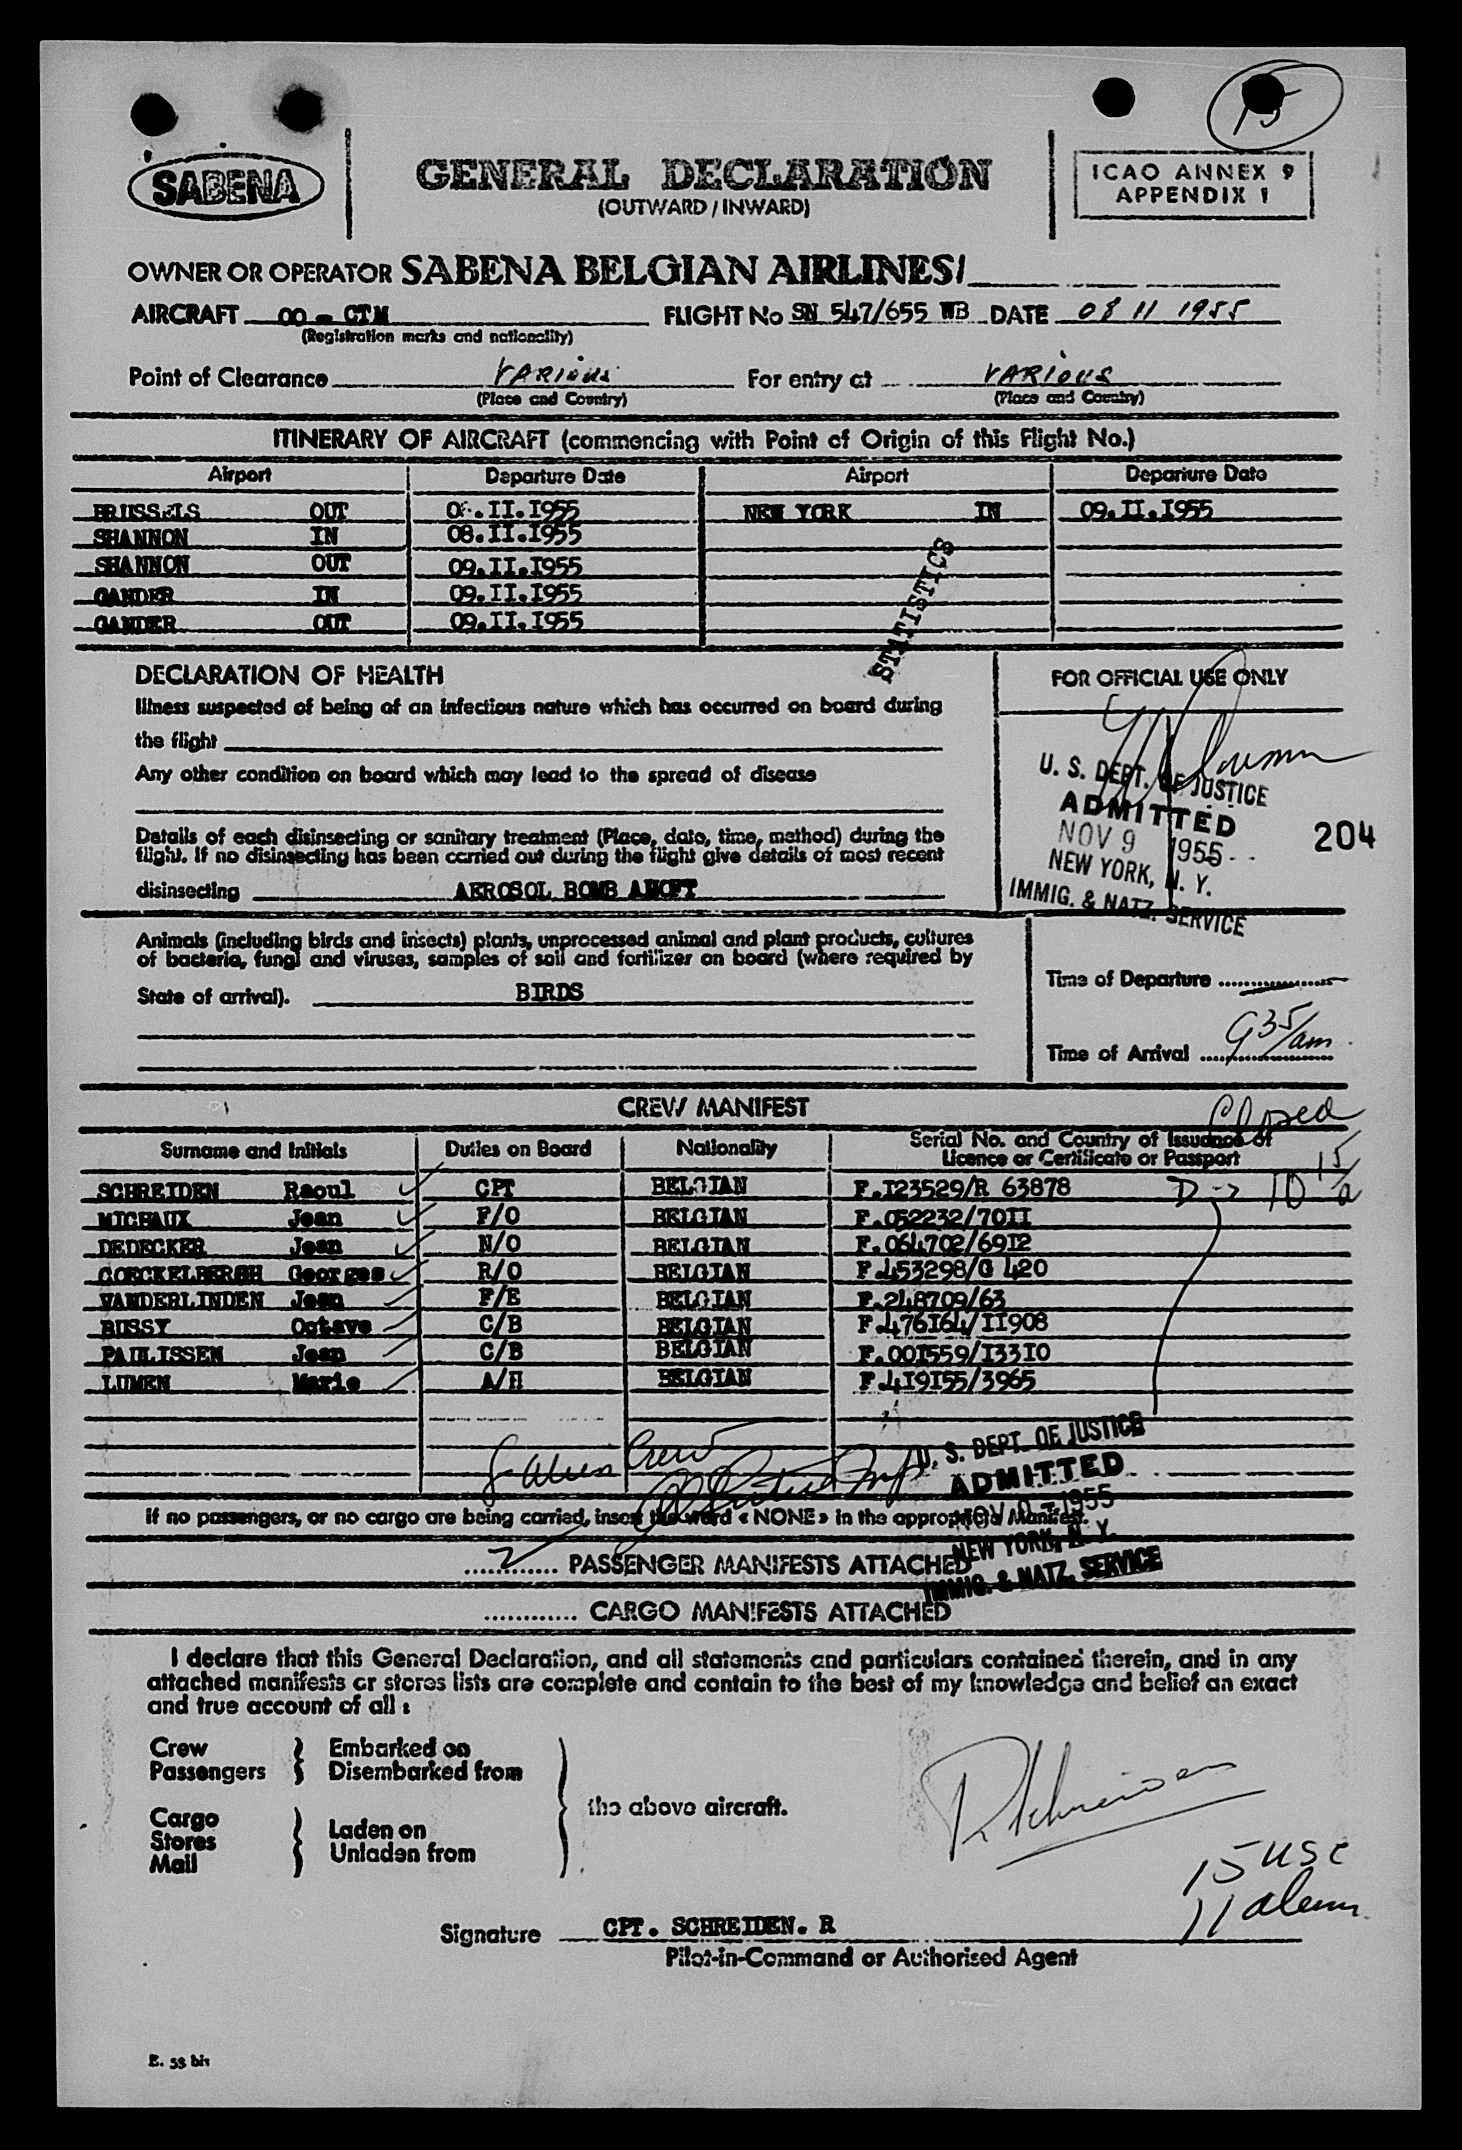 15
SABENA
GENERAL DECLARATION
(OUTWARD / INWARD)
ICAO ANNEX 9
APPENDIX 1
OWNER OR OPERATOR SABENA BELGIAN AIRLINES/
AIRCRAFT OO - CTM FLIGHT No SN 547/655 WB DATE 08 11 1955
(Registration marks and nationality)
Point of Clearance VARIOUS For entry at VARIOUS
(Place and Country) (Place and Country)
ITINERARY OF AIRCRAFT (commencing with Point of Origin of this Flight No.)
Airport Departure Date Airport Departure Date
BRUSSELS OUT 08.II.I955 NEW YORK IN 09.II.I955
SHANNON IN 08.II.I955
SHANNON OUT 09.II.I955
GANDER IN 09.II.I955
GANDER OUT 09.II.I955
STATISTICS
DECLARATION OF HEALTH
FOR OFFICIAL USE ONLY
Illness suspected of being of an infectious nature which has occurred on board during
the flight
Any other condition on board which may lead to the spread of disease
Details of each disinsecting or sanitary treatment (Place, date, time, method) during the
flight. If no disinsecting has been carried out during the flight give details of most recent
disinsecting AEROSOL BOMB
U. S. DEPT. OF JUSTICE
ADMITTED
NOV 9 1955
NEW YORK, N. Y.
IMMIG. & NATZ. SERVICE
204
Animals (including birds and insects) plants, unprocessed animal and plant products, cultures
of bacteria, fungi and viruses, samples of soil and fertilizer on board (where required by
State of arrival). BIRDS
Time of Departure
Time of Arrival 935/am
CREW MANIFEST
Closed
Surname and Initials Duties on Board Nationality Serial No. and Country of Issuance of
Licence or Certificate or Passport
SCHREIDEN Raoul CPT BELGIAN F.I23529/R 63878 D-> 10 15/a
MICHAUX Jean F/O BELGIAN F.052232/70II
DEDECKER Jean N/O BELGIAN F.064702/69I2
COECKELBERGH Georges R/O BELGIAN F.453298/G 420
VANDERLINDEN Jean F/E BELGIAN F.248709/63
BUSSY Octave C/B BELGIAN F.476I64/II908
PAULISSEN Jean C/B BELGIAN F.00I559/I33I0
LUMEN Marie A/H BELGIAN F.4I9I55/3965
8 alien Crew
U. S. DEPT. OF JUSTICE
ADMITTED
NOV 9 - 1955
NEW YORK, N. Y.
IMMIG. & NATZ. SERVICE
If no passengers, or no cargo are being carried, insert the word « NONE » in the appropriate Manifest.
2 PASSENGER MANIFESTS ATTACHED
............ CARGO MANIFESTS ATTACHED
I declare that this General Declaration, and all statements and particulars contained therein, and in any
attached manifests or stores lists are complete and contain to the best of my knowledge and belief an exact
and true account of all :
Crew Embarked on
Passengers Disembarked from
the above aircraft.
Cargo
Stores Laden on
Mail Unladen from
R Schreiden
15 USC
11 aliens
Signature CPT. SCHREIDEN. R
Pilot-in-Command or Authorised Agent
E. 53 bis